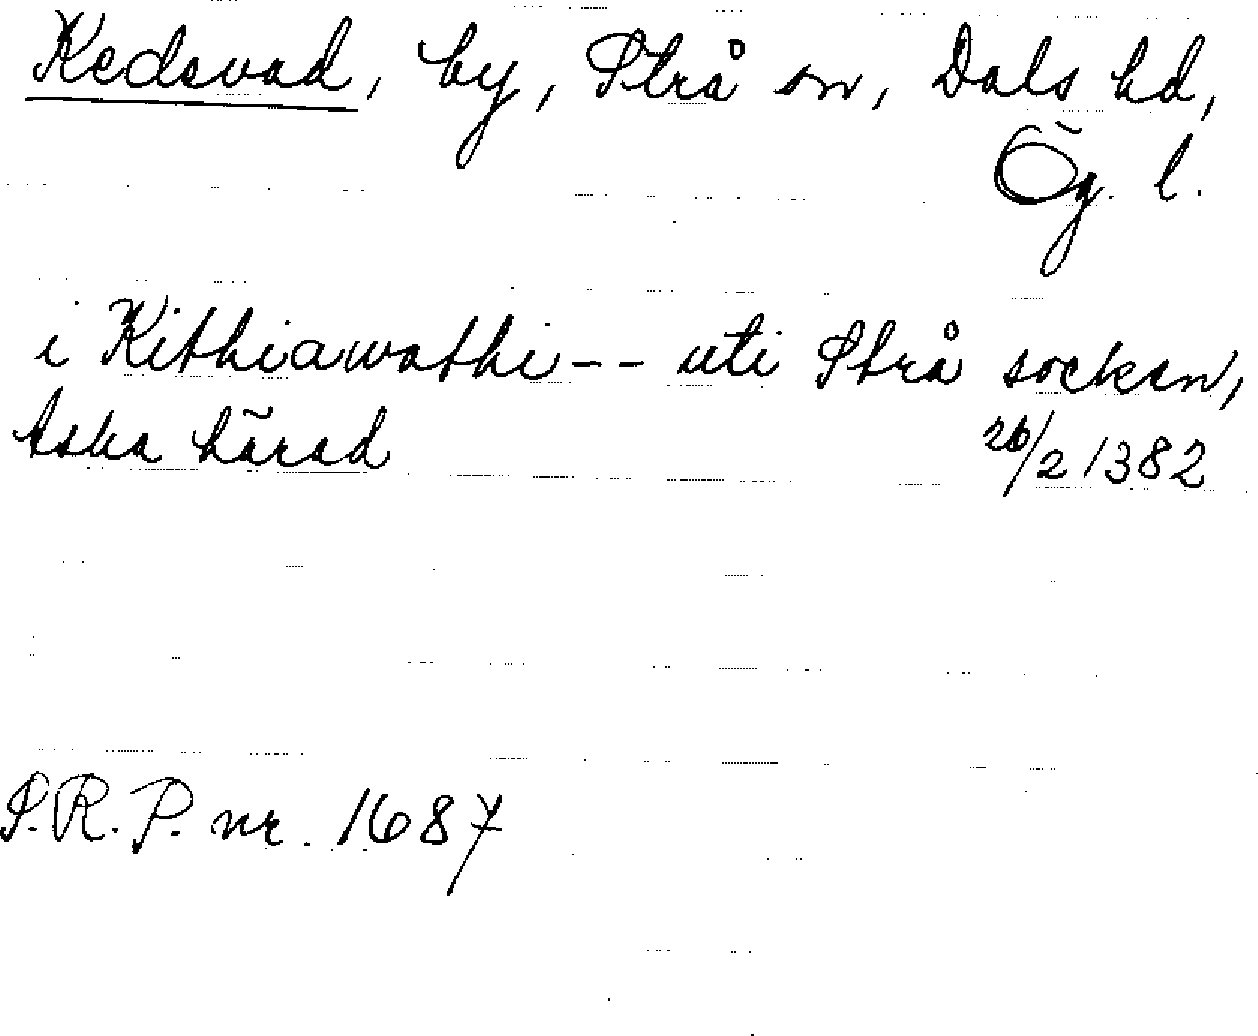 Kedevad, by, Strå sn, Dals hd,
Ög. l.
i Kithiawathi -- uti Strå socken,
Aska härad 26/2 1382
S.R.P. nr. 1687